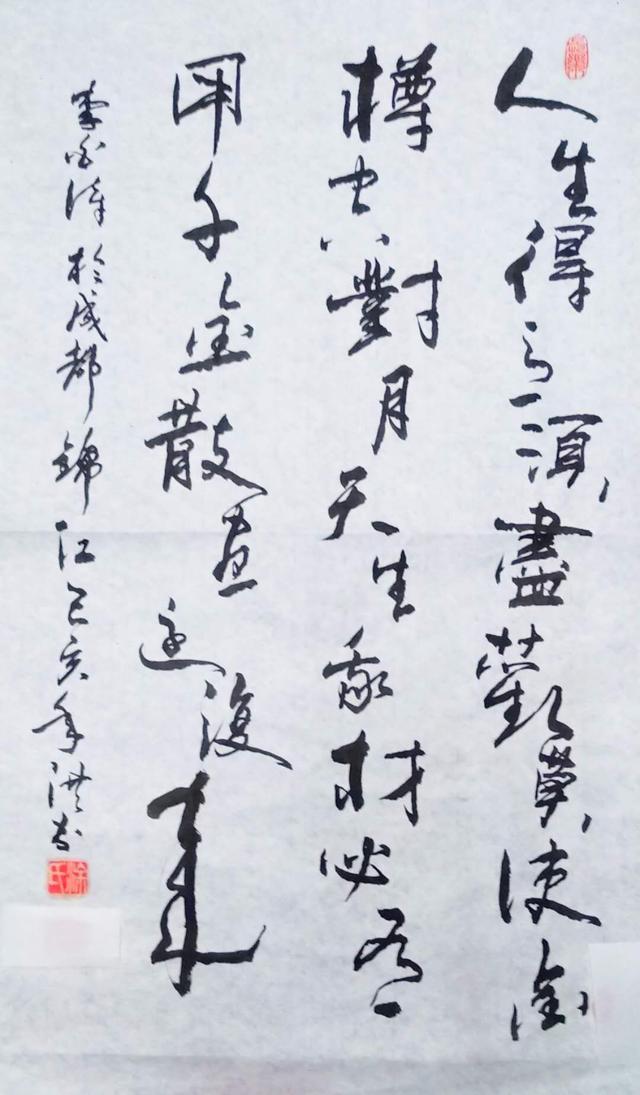 人生得意須盡歡莫使金
樽空對月天生我材必有
用千金散盡還復來
李白詩於成都錦江己亥年洪書
徐氏